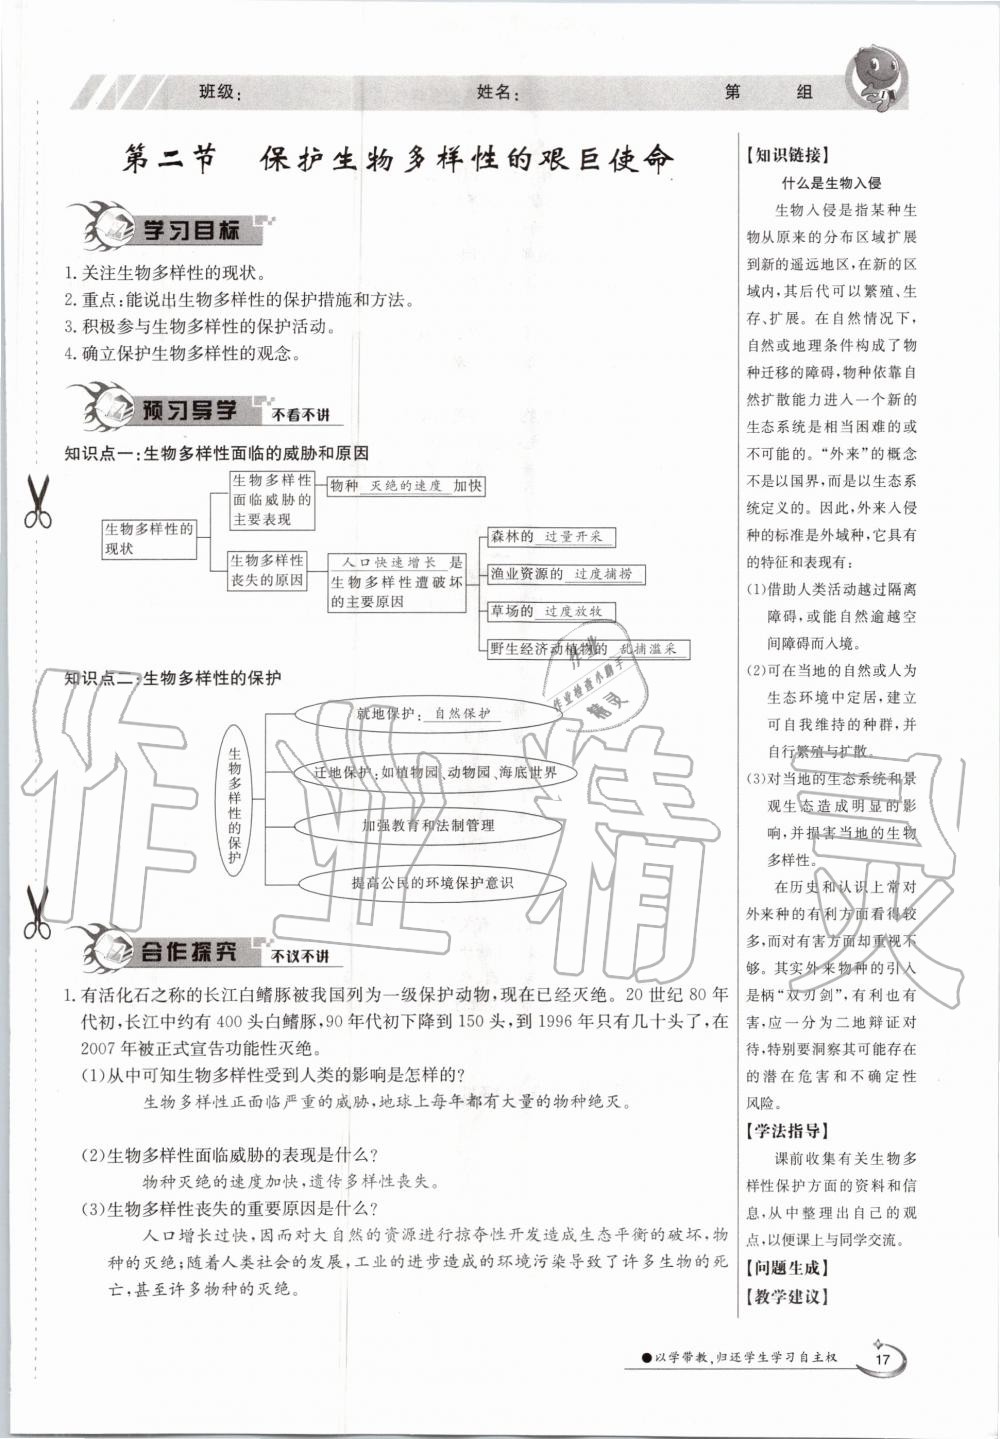 班级：　姓名：　第　组
第二节　保护生物多样性的艰巨使命
学习目标
1. 关注生物多样性的现状。
2. 重点：能说出生物多样性的保护措施和方法。
3. 积极参与生物多样性的保护活动。
4. 确立保护生物多样性的观念。
预习导学　不看不讲
知识点一：生物多样性面临的威胁和原因
生物多样性的
现状
生物多样性
面临威胁的
主要表现
物种 灭绝的速度 加快
生物多样性
丧失的原因
人口快速增长 是
生物多样性遭破坏
的主要原因
森林的 过量开采
渔业资源的 过度捕捞
草场的 过度放牧
野生经济动植物的 乱捕滥采
知识点二：生物多样性的保护
生物多样性的保护
就地保护： 自然保护
迁地保护：如植物园、动物园、海底世界
加强教育和法制管理
提高公民的环境保护意识
合作探究　不议不讲
1. 有活化石之称的长江白鳍豚被我国列为一级保护动物，现在已经灭绝。20 世纪 80 年
代初，长江中约有 400 头白鳍豚，90 年代初下降到 150 头，到 1996 年只有几十头了，在
2007 年被正式宣告功能性灭绝。
(1)从中可知生物多样性受到人类的影响是怎样的？
生物多样性正面临严重的威胁，地球上每年都有大量的物种绝灭。
(2)生物多样性面临威胁的表现是什么？
物种灭绝的速度加快，遗传多样性丧失。
(3)生物多样性丧失的重要原因是什么？
人口增长过快，因而对大自然的资源进行掠夺性开发造成生态平衡的破坏，物
种的灭绝；随着人类社会的发展，工业的进步造成的环境污染导致了许多生物的死
亡，甚至许多物种的灭绝。
【知识链接】
什么是生物入侵
生物入侵是指某种生
物从原来的分布区域扩展
到新的遥远地区，在新的区
域内，其后代可以繁殖、生
存、扩展。在自然情况下，
自然或地理条件构成了物
种迁移的障碍，物种依靠自
然扩散能力进入一个新的
生态系统是相当困难的或
不可能的。“外来”的概念
不是以国界，而是以生态系
统定义的。因此，外来入侵
种的标准是外域种，它具有
的特征和表现有：
(1)借助人类活动越过隔离
障碍，或能自然逾越空
间障碍而入境。
(2)可在当地的自然或人为
生态环境中定居，建立
可自我维持的种群，并
自行繁殖与扩散。
(3)对当地的生态系统和景
观生态造成明显的影
响，并损害当地的生物
多样性。
在历史和认识上常对
外来种的有利方面看得较
多，而对有害方面却重视不
够。其实外来物种的引入
是柄“双刃剑”，有利也有
害，应一分为二地辩证对
待，特别要洞察其可能存在
的潜在危害和不确定性
风险。
【学法指导】
课前收集有关生物多
样性保护方面的资料和信
息，从中整理出自己的观
点，以便课上与同学交流。
【问题生成】
【教学建议】
●以学带教，归还学生学习自主权
17
作业
作业检查小助手
精灵
作业精灵